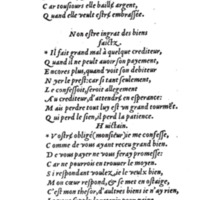 Car tousiours elle baille argent,
Quand elle veult estre embrassee.
Non estre ingrat des biens
faictz.
* Il fait grand mal à quelque crediteur,
Quand il ne peut auoir son payement,
Encores plus, quand voit son debiteur
N'y ler le prest: car se faut
Le confessoit, seroit allegement
Au crediteur, d'attendre en esperant:
Mais perdre tout luy est vn grand tourment:
Qui perd le sien, il perd la patience.
Huictain.
* Vostre obligé (monsieur) ie me confesse,
Comme de vous ayant receu grand bien.
De vous payer ne vous feray promesse:
Car ne pourrois en trouuer le moyen.
Si respondant voulez, ie le veulx bien,
Mon cœur respond, & se met en ostaige,
C'est mon thesor, d'aultres biens ie n'ay rien,